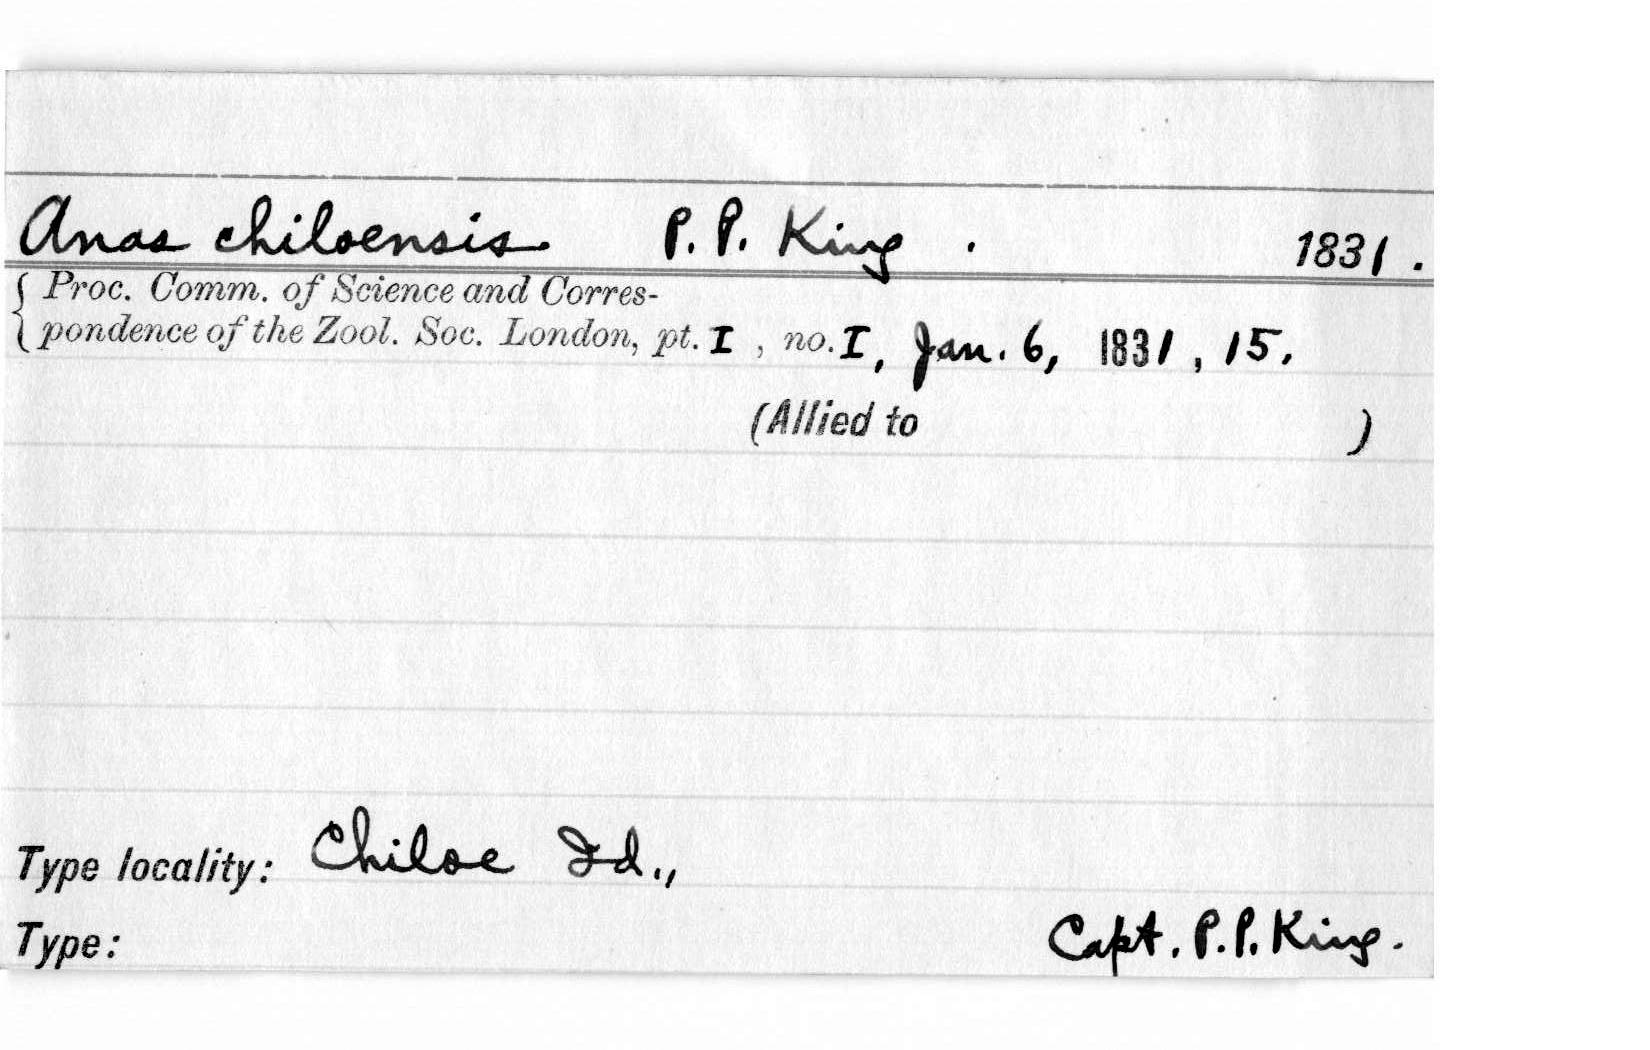 Anas chiloensis. P. P. King . 1831 .
{ Proc. Comm. of Science and Corres-
pondence of the Zool. Soc. London, pt. I , no. I, Jan. 6, 1831 , 15.
(Allied to )
Type locality: Chiloe Id.,
Type: Capt. P. P. King.